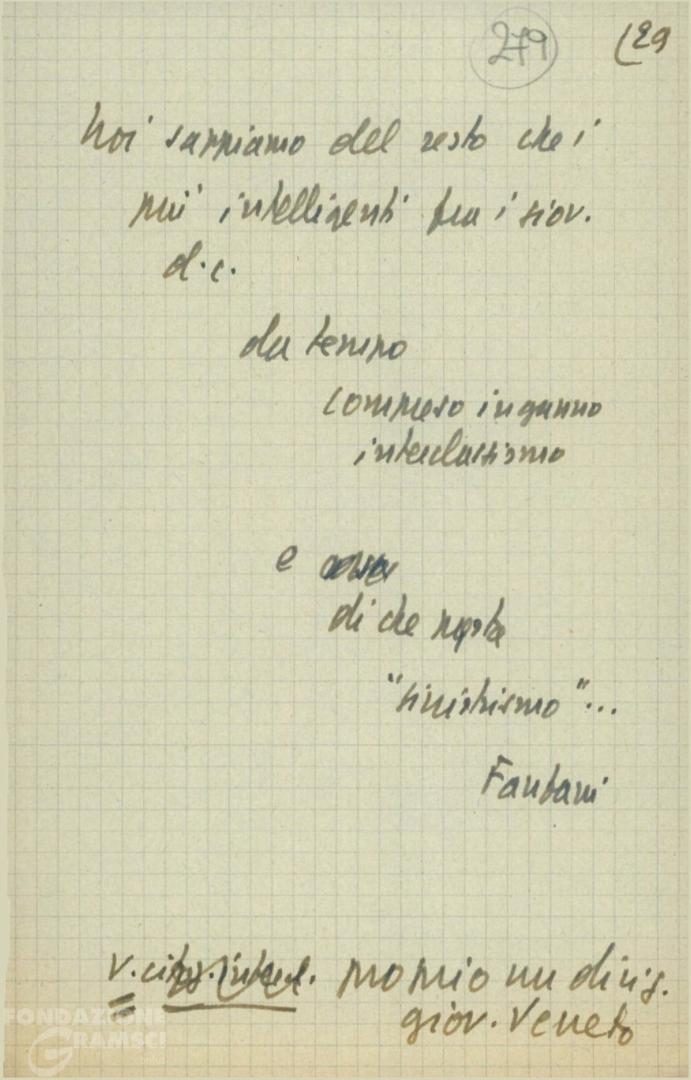 279
(29
Noi sappiamo del resto che i
più intelligenti fra i giov.
d.c.
da tempo
compreso inganno
interclassismo
e
di che pasta
"sinistrismo"...
Fanfani
v. proprio un dirig.
giov. Veneto
FONDAZIONE
GRAMSCI